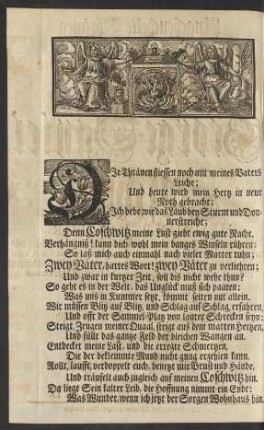 DIe Thränen fliessen noch um meines Vaters
Leiche;
Und heute wird mein Hertz in neue
Noth gebracht;
Ich bebe wie das Laub bey Sturm und Don-
nerstreiche;
Denn Coschwitz meine Lust giebt ewig gute Nacht.
Verhängnis! kann dich wohl mein banges Winseln rühren:
So laß mich auch einmahl nach vieler Marter ruhn;
Zwey Väter, hartes Wort! zwey Väter zu verliehren;
Und zwar in kurtzer Zeit, soll dis nicht wehe thun?
So geht es in der Welt, das Unglück muß sich paaren:
Was uns in Kummer setzt, kömmt selten nur allein.
Wir müssen Blitz auf Blitz, und Schlag auf Schlag, erfahren,
Und offt der Sammel-Platz von lauter Schrecken seyn:
Steigt, Zeugen meiner Quaal, steigt aus dem matten Hertzen,
Und füllt das gantze Feld der bleichen Wangen an.
Entdecket meine Last, und die erregte Schmertzen,
Die der beklemmte Mund nicht gnug erzehlen kann.
Rollt, laufft, verdoppelt euch, benetzt mir Brust und Hände,
Und träufelt auch zugleich auf meinen Coschwitz hin.
Da liegt Sein kalter Leib, die Hoffnung nimmt ein Ende:
Was Wunder, wenn ich jetzt der Sorgen Wohnhaus bin.